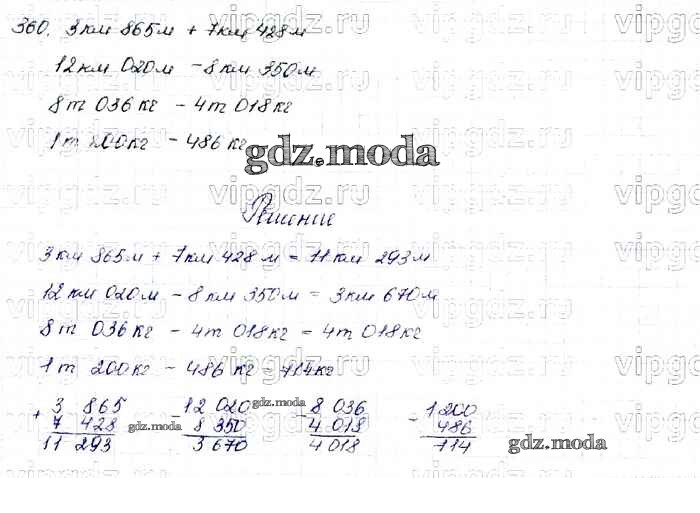 360. 3км 865м + 7км 428м
12км 020м - 8км 350м
8т 036кг - 4т 018кг
1т 200кг - 486кг
gdz.moda
Решение
3км 865м + 7км 428м = 11км 293м
12км 020м - 8км 350м = 3км 670м
8т 036кг - 4т 018кг = 4т 018кг
1т 200кг - 486кг = 714кг
+ 3 865 - 12 020 gdz.moda - 8 036 - 1200
7 428 gdz.moda 8 350 4 018 486
11 293 3 670 4 018 714 gdz.moda
vipgdz.ru